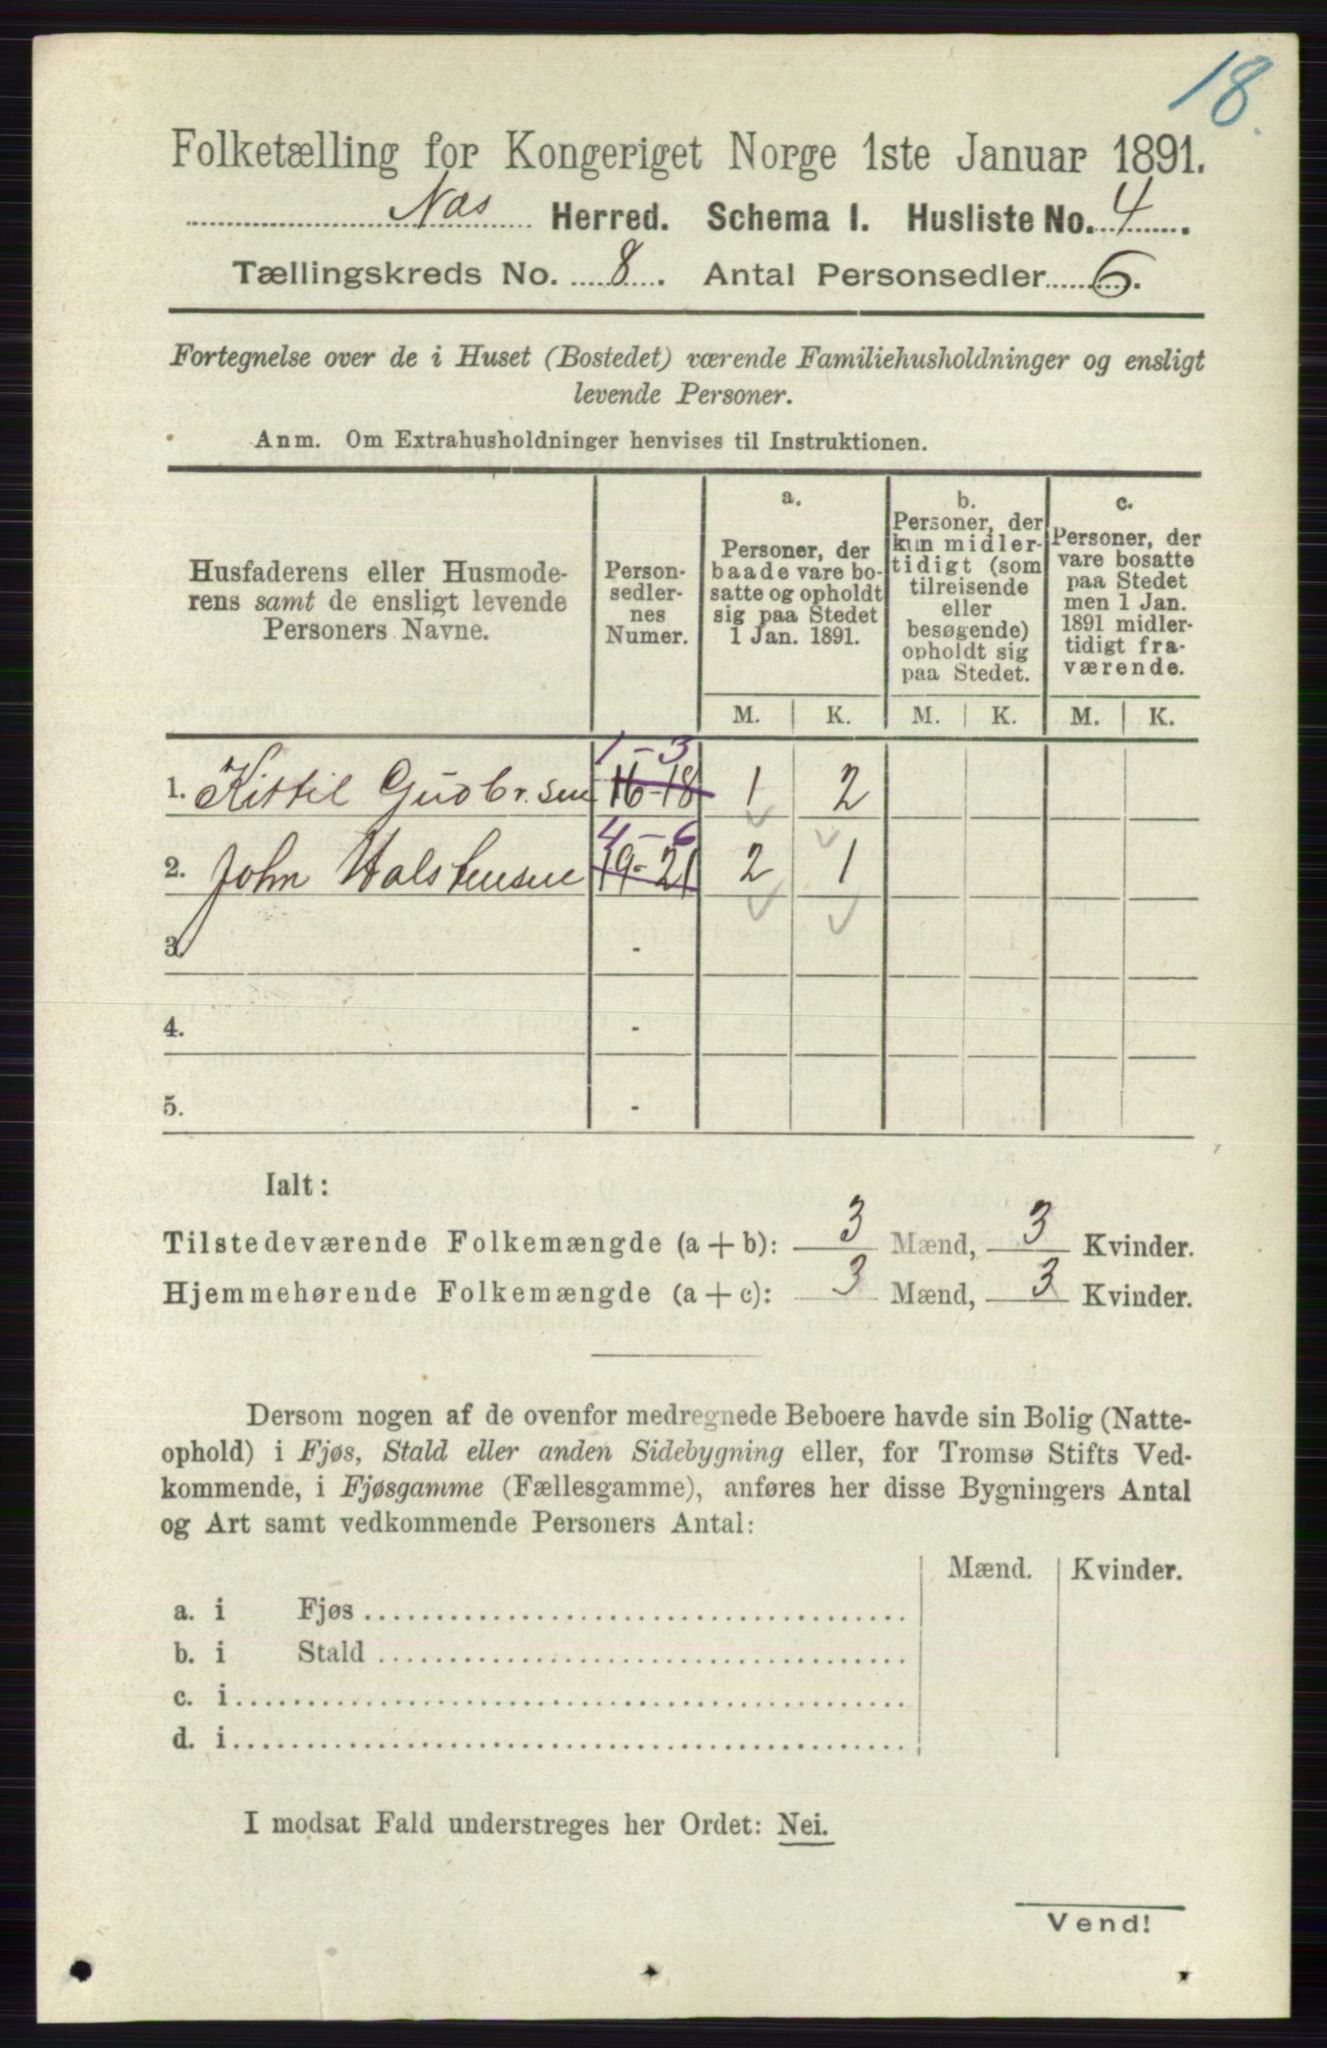 18
Folketælling for Kongeriget Norge 1ste Januar 1891.
Næs Herred. Schema I. Husliste No. 4.
Tællingskreds No. 8. Antal Personsedler 6.
Fortegnelse over de i Huset (Bostedet) værende Familiehusholdninger og ensligt
levende Personer.
Anm. Om Extrahusholdninger henvises til Instruktionen.
Husfaderens eller Husmode-
rens samt de ensligt levende
Personers Navne.
Person-
sedler-
nes
Numer.
a.
Personer, der
baade vare bo-
satte og opholdt
sig paa Stedet
1 Jan. 1891.
b.
Personer, der
kun midler-
tidigt (som
tilreisende
eller
besøgende)
opholdt sig
paa Stedet.
c.
Personer, der
vare bosatte
paa Stedet
men 1 Jan.
1891 midler-
tidigt fra-
værende.
M. K. M. K. M. K.
1-3
1. Kittil Gudbr.sen 16-18 1 2
4-6
2. John Halstensen 19-21 2 1
3. -
4. -
5. -
Ialt:
Tilstedeværende Folkemængde (a+b): 3 Mænd, 3 Kvinder.
Hjemmehørende Folkemængde (a+c): 3 Mænd, 3 Kvinder.
Dersom nogen af de ovenfor medregnede Beboere havde sin Bolig (Natte-
ophold) i Fjøs, Stald eller anden Sidebygning eller, for Tromsø Stifts Ved-
kommende, i Fjøsgamme (Fællesgamme), anføres her disse Bygningers Antal
og Art samt vedkommende Personers Antal:
Mænd. Kvinder.
a. i Fjøs
b. i Stald
c. i
d. i
I modsat Fald understreges her Ordet: Nei.
Vend!